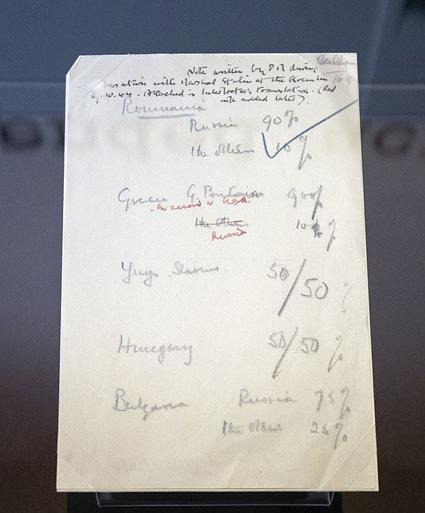 Note written by P.M during
conversation with Marshal Stalin at the Kremlin
9.10.44. Attached is Interpreter's translation. (Red
ink added later).
Roumania
Russia 90%
The others 10%
Greece G. Britain 90%
in accord w. USA.
The others 10%
Russia
Yugo Slavia. 50/50 %
Hungary 50/50 %
Bulgaria Russia 75%
The others 25%